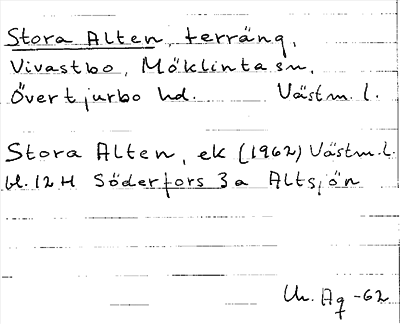 Stora Alten, terräng,
Vivastbo, Möklinta sn,
Övertjurbo hd. Västm. l.
Stora Alten, ek (1962) Västm. l.
bl. 12 H Söderfors 3 a Altsjön
Un. Aq -62